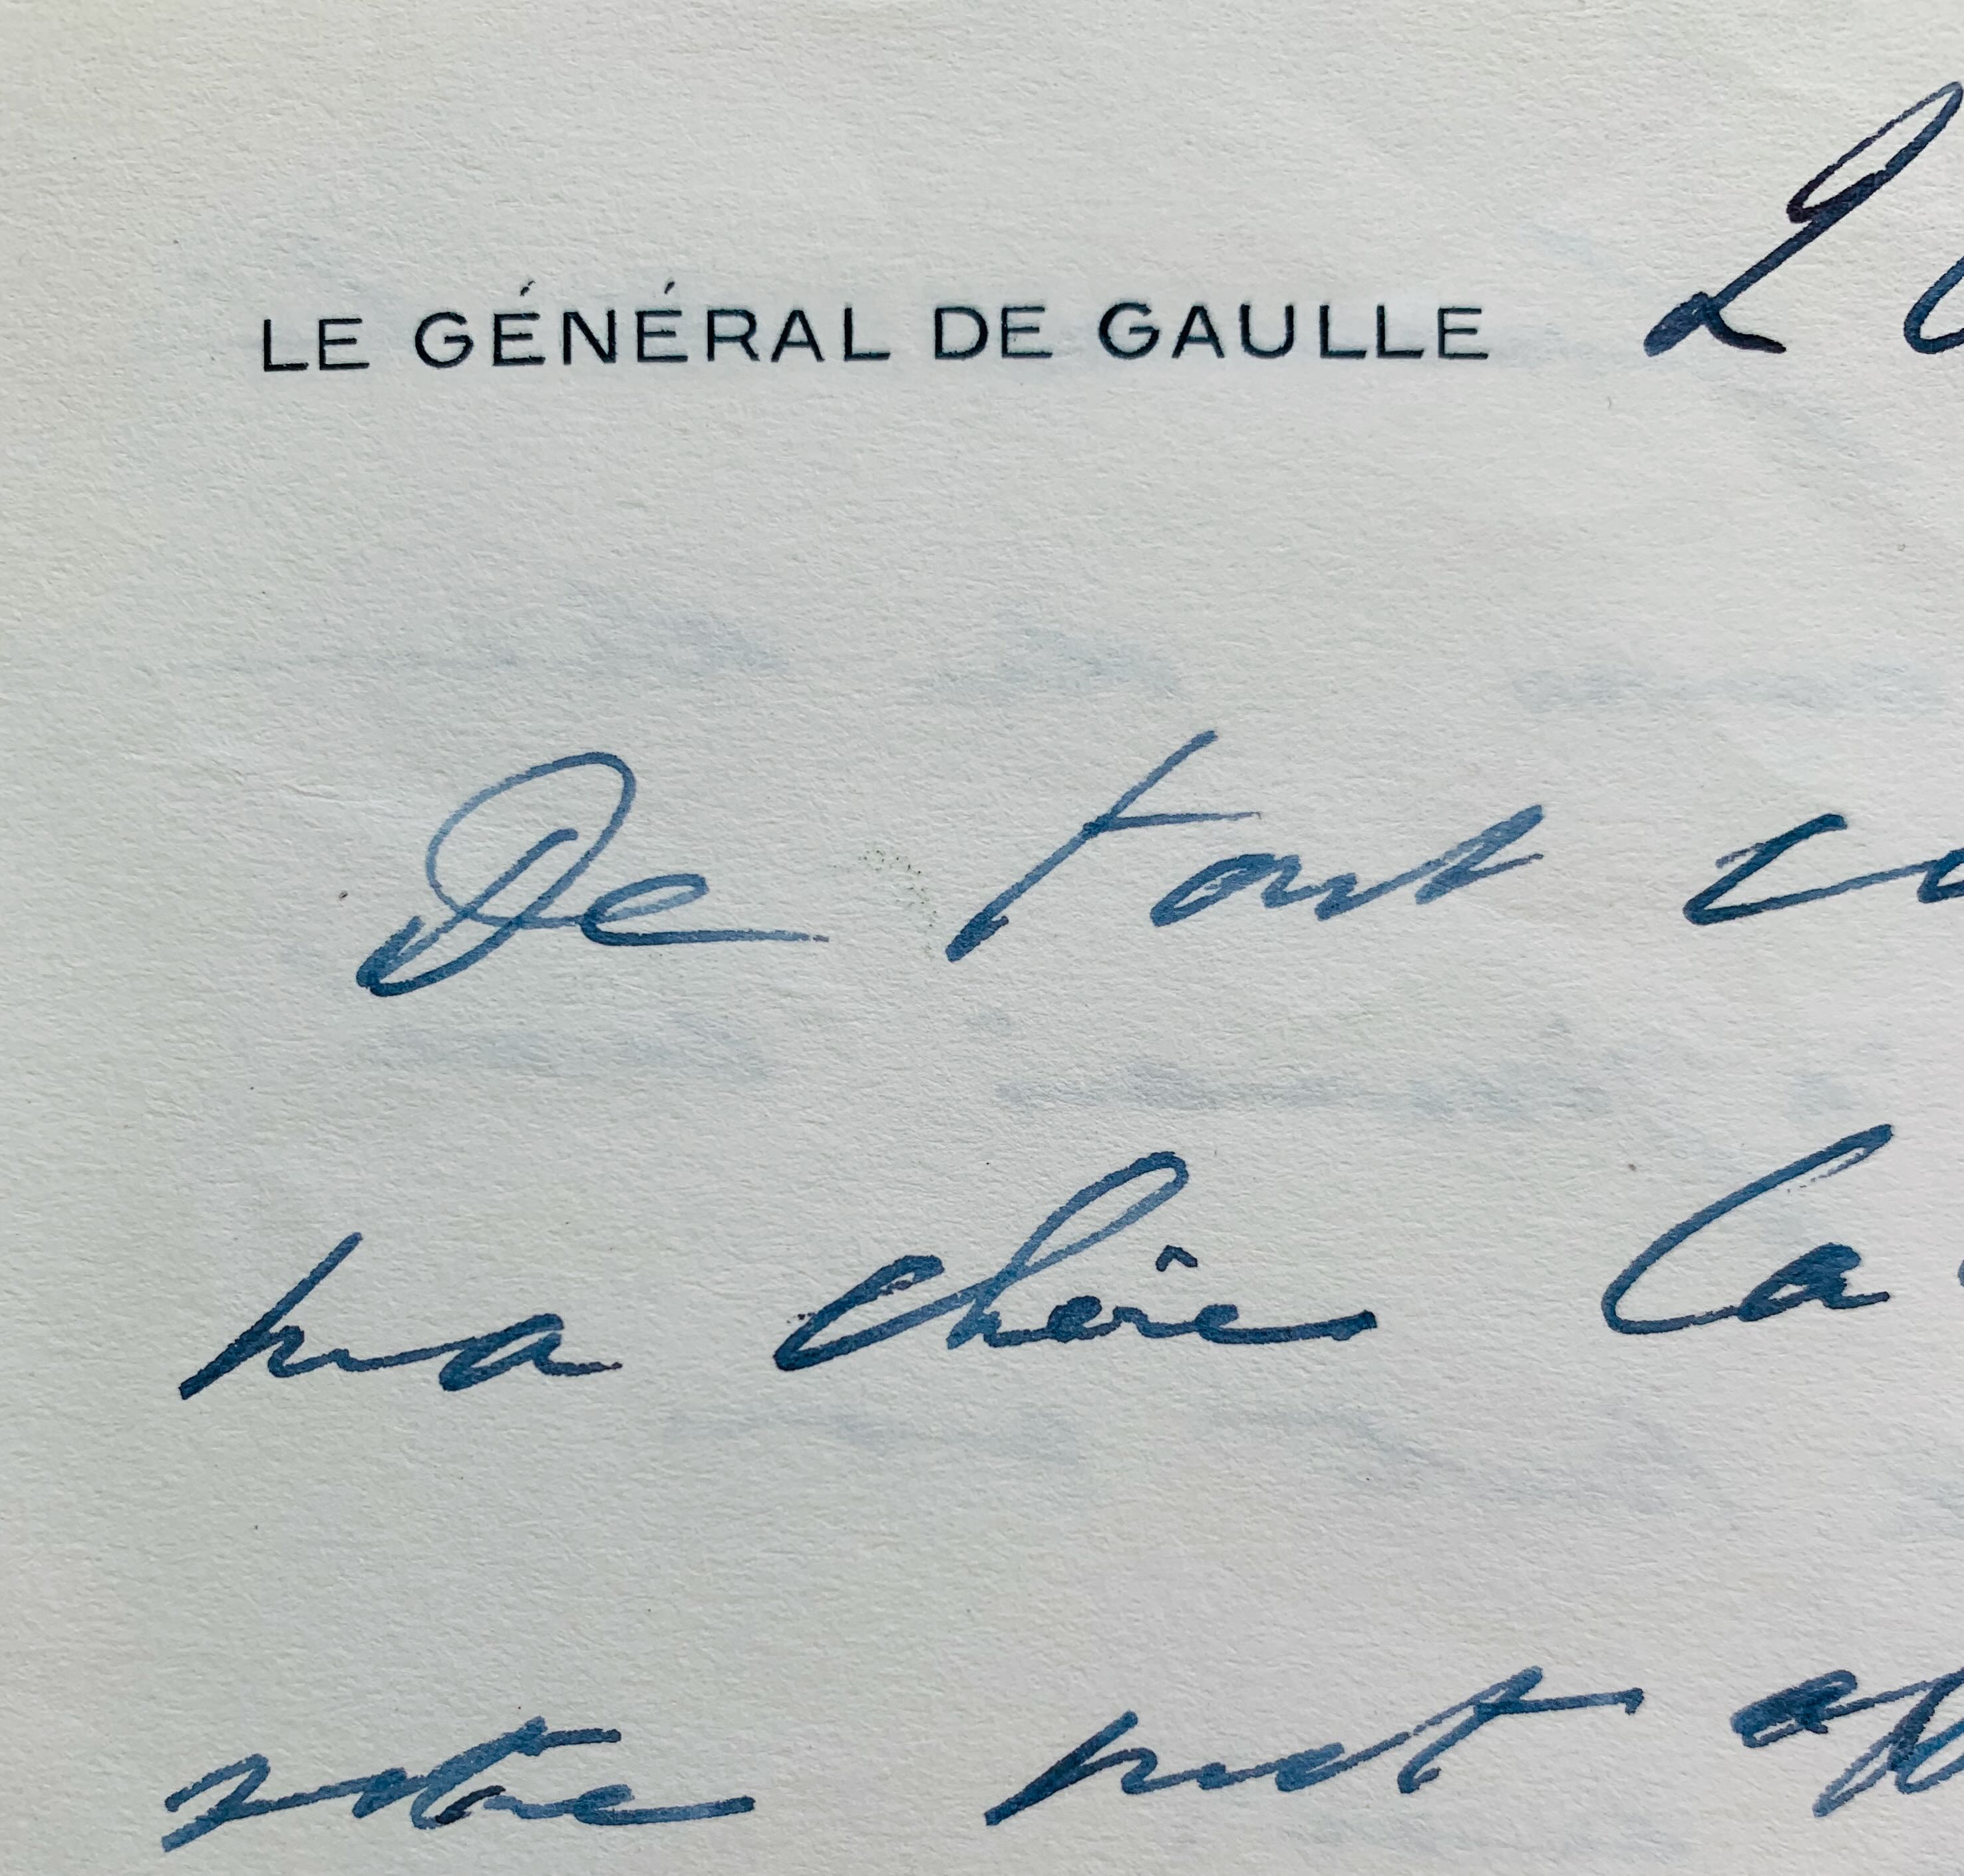 LE GÉNÉRAL DE GAULLE
De tout
ma chère
votre mot